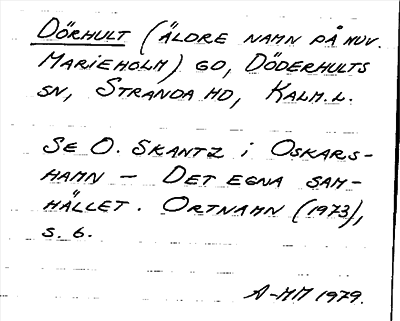 DÖRHULT (ÄLDRE NAMN PÅ NUV.
MARIEHOLM) GD, DÖDERHULTS
SN, STRANDA HD, KALM.L.
SE O. SKANTZ i OSKARS-
HAMN – DET EGNA SAM-
HÄLLET. ORTNAMN (1973),
S. 6.
A-MM 1979.